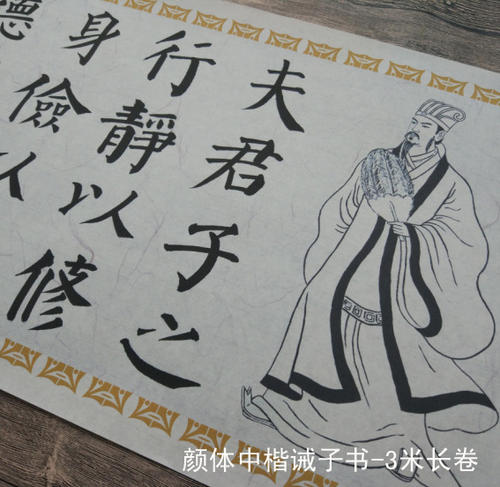 夫君子之
行靜以修
身儉以
德
颜体中楷诫子书-3米长卷